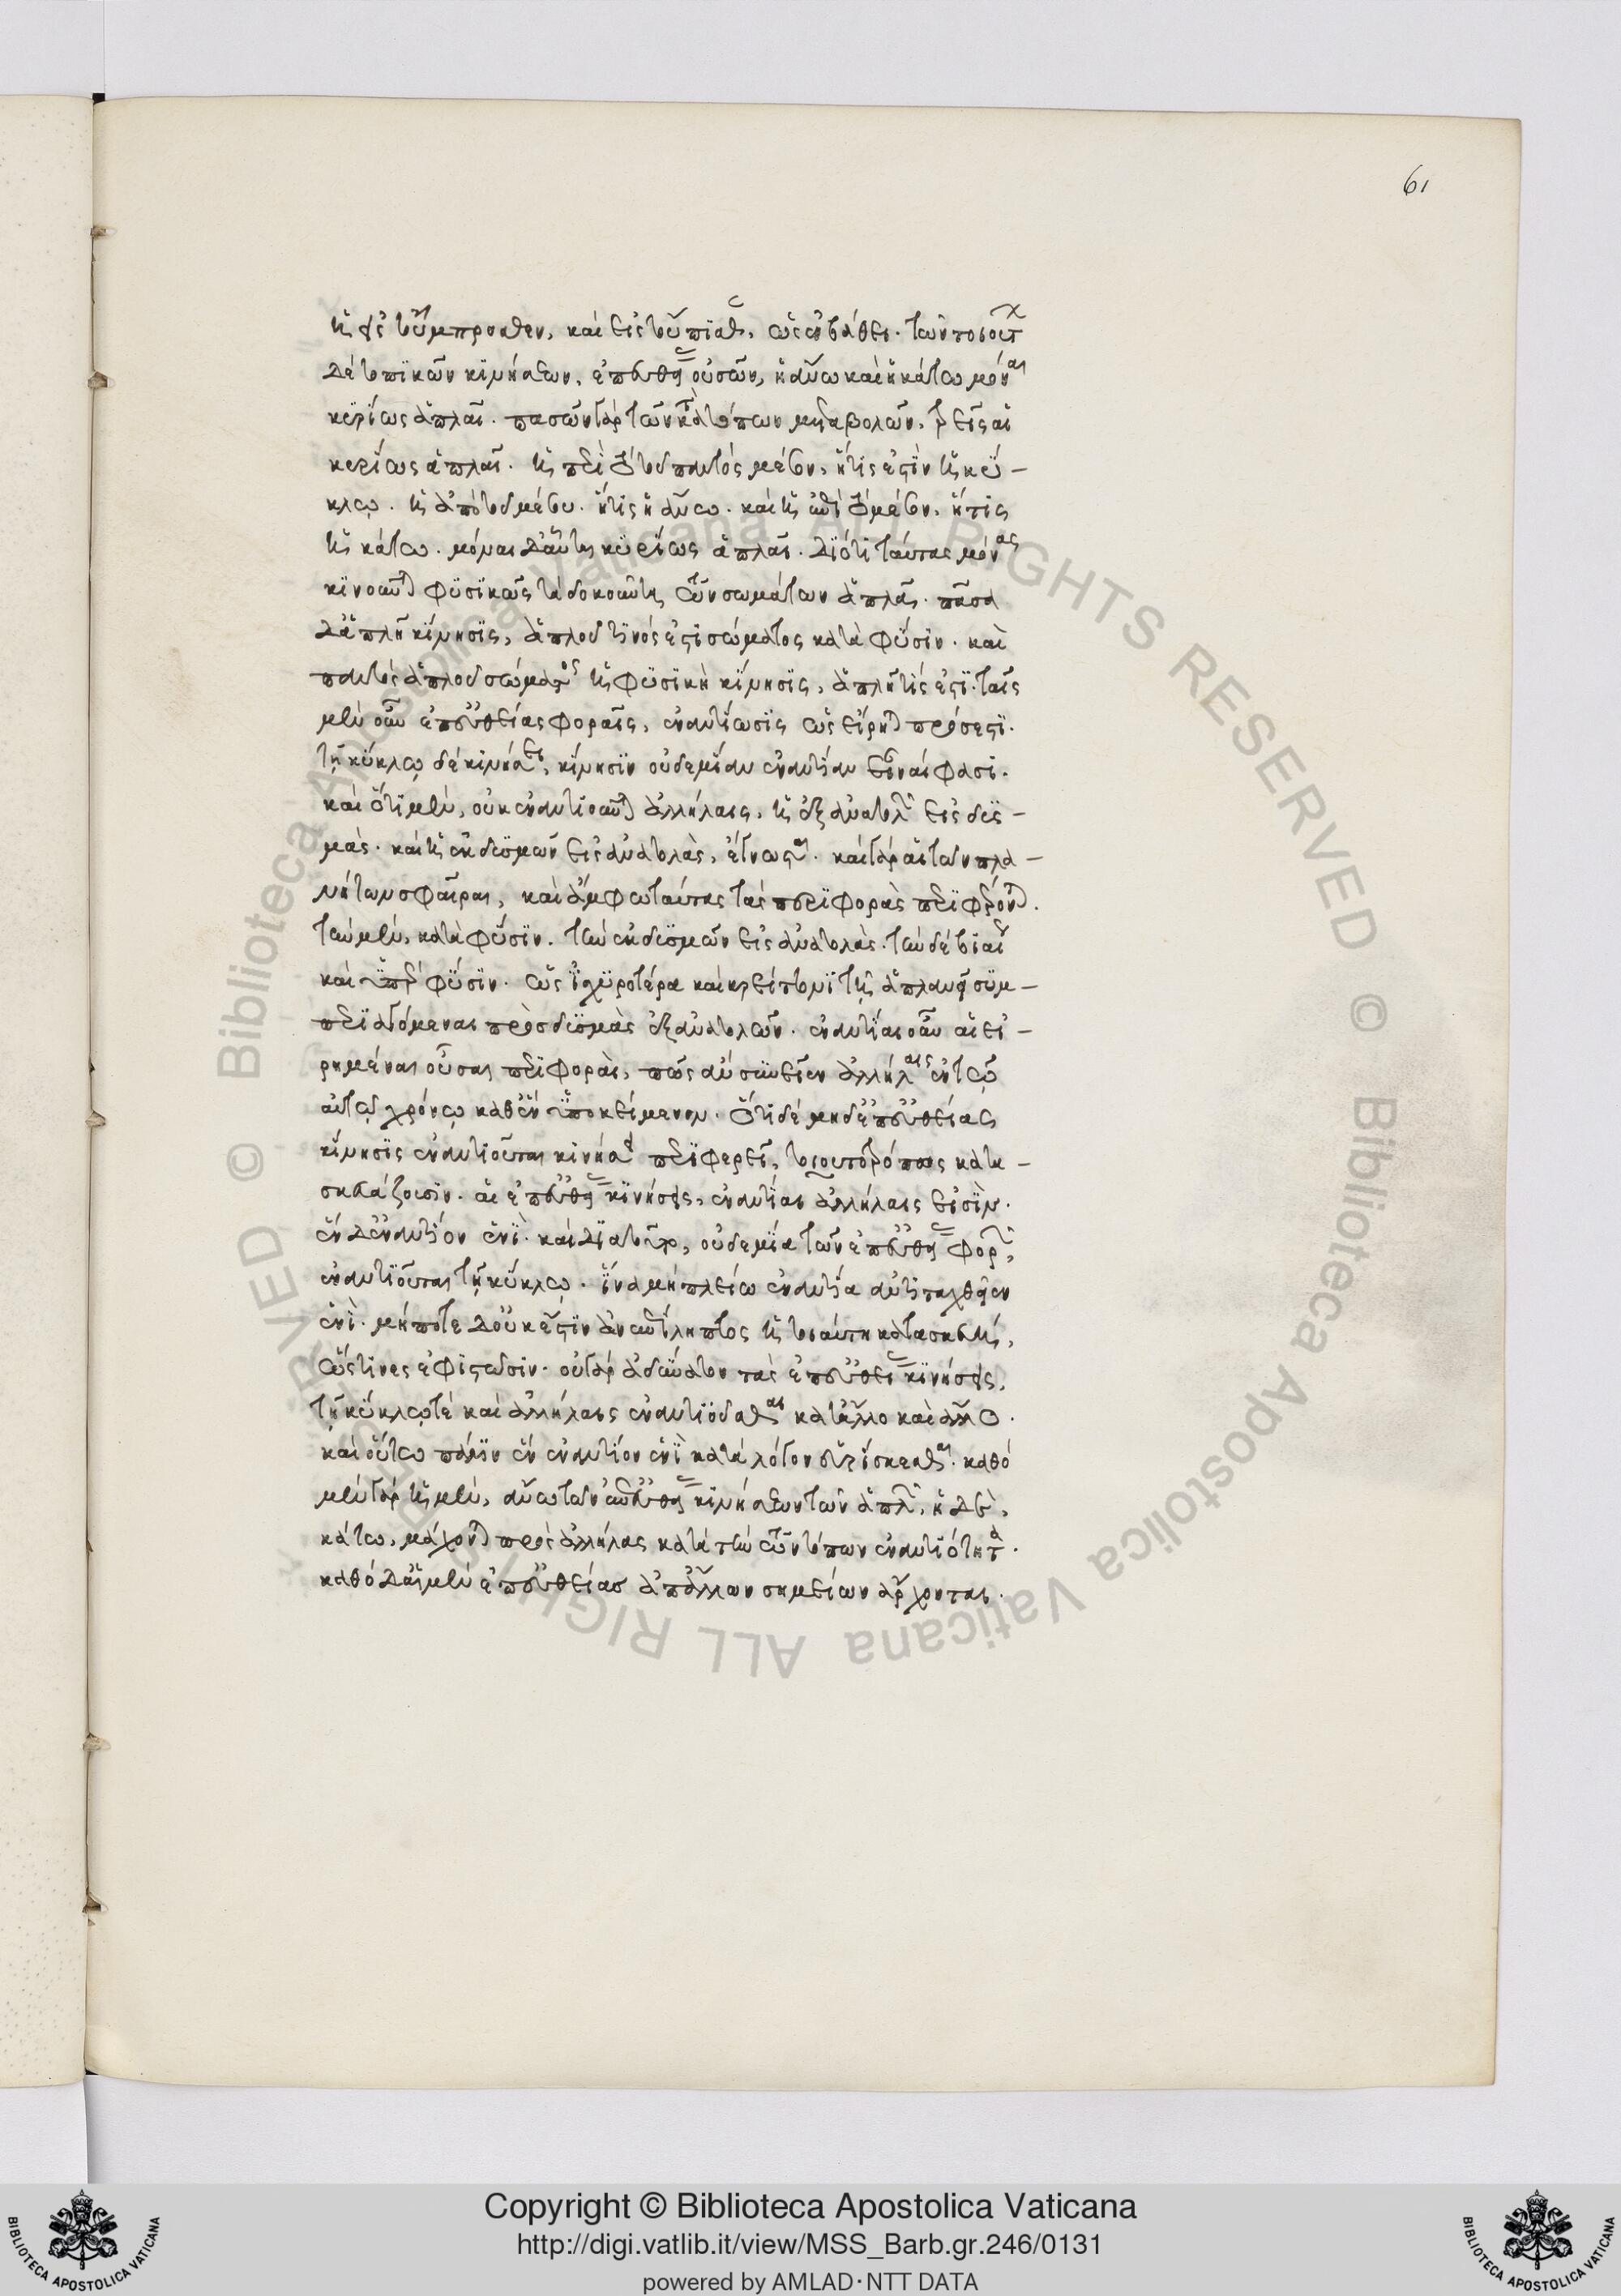 61
ἢ εἰς τοὔμπροσθεν, καὶ εἰς τοὔπισθεν, ὡς ἐν βάθει. τῶν τοιούτων
δὲ τοπικῶν κινήσεων, ἐπ' εὐθείας οὐσῶν, ἡ ἄνω καὶ ἡ κάτω μόναι
κυρίως ἁπλαῖ. πασῶν γὰρ τῶν κατὰ τόπων μεταβολῶν, τρεῖς αἱ
κυρίως ἁπλαῖ. ἡ περὶ τὸ τοῦ παντὸς μέσον, ἥτις ἐστὶν ἡ κύ-
κλῳ. ἡ ἀπὸ τοῦ μέσου. ἥτις ἡ ἄνω. καὶ ἡ ἐπὶ τὸ μέσον, ἥτις
ἡ κάτω. μόναι δ' αὗται κυρίως ἁπλαῖ. διότι ταύτας μόνας
κινοῦνται φυσικῶς τὰ δοκοῦντα τῶν σωμάτων ἁπλᾶ. πᾶσα
δ' ἁπλῆ κίνησις, ἁπλοῦ τινός ἐστι σώματος κατὰ φύσιν. καὶ
παντὸς ἁπλοῦ σώματος ἡ φυσικὴ κίνησις, ἁπλῆ τίς ἐστι. ταῖς
μὲν οὖν ἐπ' εὐθείας φοραῖς, ἐναντίωσις ὡς εἴρηται πρόσεστι.
τῇ κύκλῳ δὲ κινήσει, κίνησιν οὐδεμίαν ἐναντίαν εἶναί φασι.
καὶ ὅτι μὲν, οὐκ ἐναντιοῦνται ἀλλήλαις, ἡ ἐξ ἀνατολῶν εἰς δυσ-
μὰς. καὶ ἡ ἐκ δυσμῶν εἰς ἀνατολὰς, ἔγνωσται. καὶ γὰρ αἱ τῶν πλα-
νήτων σφαῖραι, καὶ ἄμφω ταύτας τὰς περιφορὰς περιφέρονται.
τὴν μὲν, κατὰ φύσιν. τὴν ἐκ δυσμῶν εἰς ἀνατολὰς. τὴν δὲ βίαν
καὶ ὑπὲρ φύσιν. ὡς ἰσχυροτέρα καὶ κρείττονι τῇ ἁπλανεῖ συμ-
περιαγόμεναι πρὸς δυσμὰς ἐξ ἀνατολῶν. ἐναντίαι οὖν αἱ εἰ-
ρημέναι οὖσαι περιφοραὶ, πῶς ἂν συνεῖεν ἀλλήλαις ἐν τῷ
αὐτῷ χρόνῳ καθ' ἓν ὑποκείμενον. ὅτι δὲ μηδ' ἐπ' εὐθείας
κίνησις ἐναντιοῦται κινήσει περιφερεῖ, τοιουτοτρόπως κατα-
σκευάζουσιν. αἱ ἐπ' εὐθείας κινήσεις, ἐναντίαι ἀλλήλαις εἰσὶν.
ἓν δ' ἐναντίον ἑνὶ. καὶ διὰ τοῦτο, οὐδεμία τῶν ἐπ' εὐθείας φορῶν,
ἐναντιοῦται τῇ κύκλῳ. ἵνα μὴ πλείω ἐναντία ἀντιταχθεῖεν
ἑνὶ. μήποτε δ' οὐκ ἔστιν ἀναντίληπτος ἡ τοιαύτη κατασκευὴ,
ὥς τινες ἐφιστῶσιν. οὐ γὰρ ἀδύνατον τὰς ἐπ' εὐθείας κινήσεις,
τῇ κύκλῳ τὲ καὶ ἀλλήλαις ἐναντιοῦσθαι κατ' ἄλλο καὶ ἄλλο.
καὶ οὕτω πάλιν ἓν ἐναντίον ἑνὶ κατὰ λόγον εὑρίσκεσθαι. καθὸ
μὲν γὰρ ἡ μὲν, ἄνω τῶν ἐπ' εὐθείας κινήσεων τῶν ἁπλῶν, ἡ δὲ,
κάτω, μάχονται πρὸς ἀλλήλας κατὰ τὴν τῶν τόπων ἐναντιότητα.
καθὸ δ' αἱ μὲν ἐπ' εὐθείας ἀπ' ἄλλων σημείων ἄρχονται.
Copyright © Biblioteca Apostolica Vaticana
http://digi.vatlib.it/view/MSS_Barb.gr.246/0131
powered by AMLAD·NTT DATA